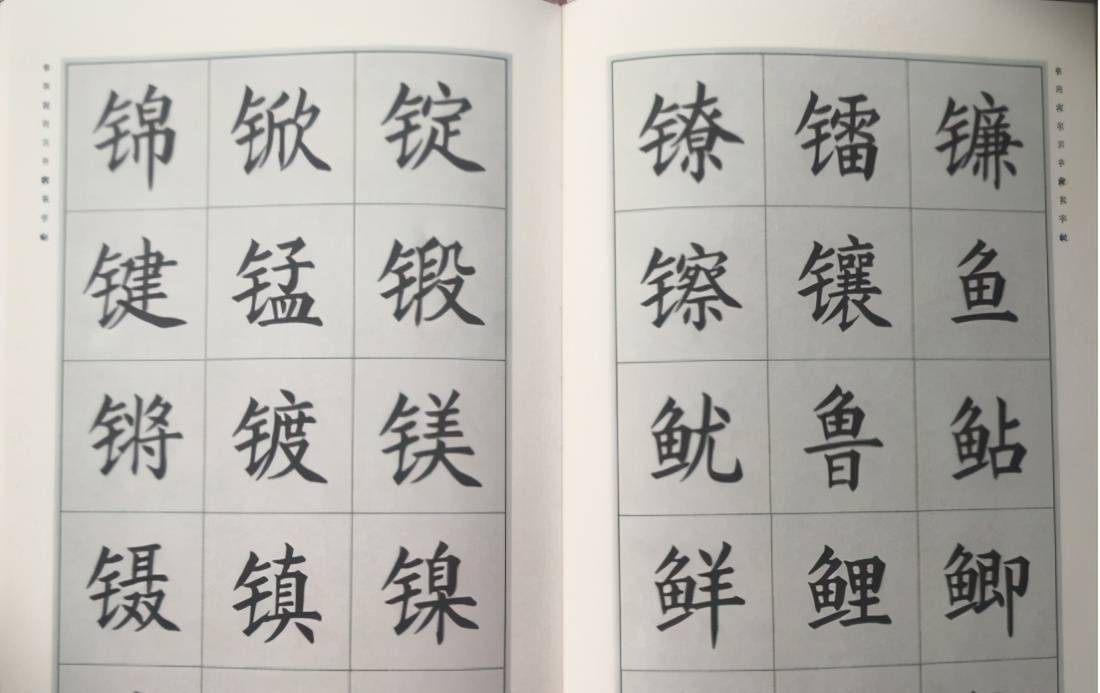 锦 锨 锭
键 锰 锻
锵 镀 镁
镊 镇 镍
镣 镭 镰
镲 镶 鱼
鱿 鲁 鲇
鲜 鲤 鲫